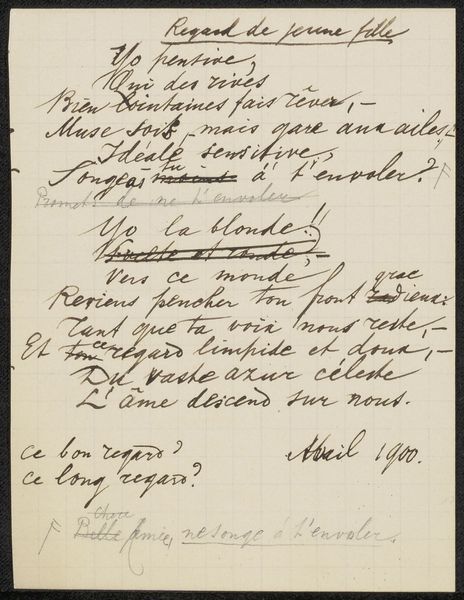 Regard de jeune fille
Yo pensive,
Qui des rives
Bien lointaines fais rêver,—
Muse sois, mais gare aux ailes,—
Idéale sensitive,
Songeais tu moins à t'envoler? F
Promets de ne t'envoler
Yo la blonde!!
Svelte et ronde,—
Vers ce monde
Reviens pencher ton front gracieux:
Tant que ta voix nous reste,—
Et ton ce regard limpide et doux,—
Du vaste azur céleste
L'âme descend sur nous.
ce bon regard?
Avril 1900.
ce long regard?
chère
F Belle Amie, ne songe à t'envoler.